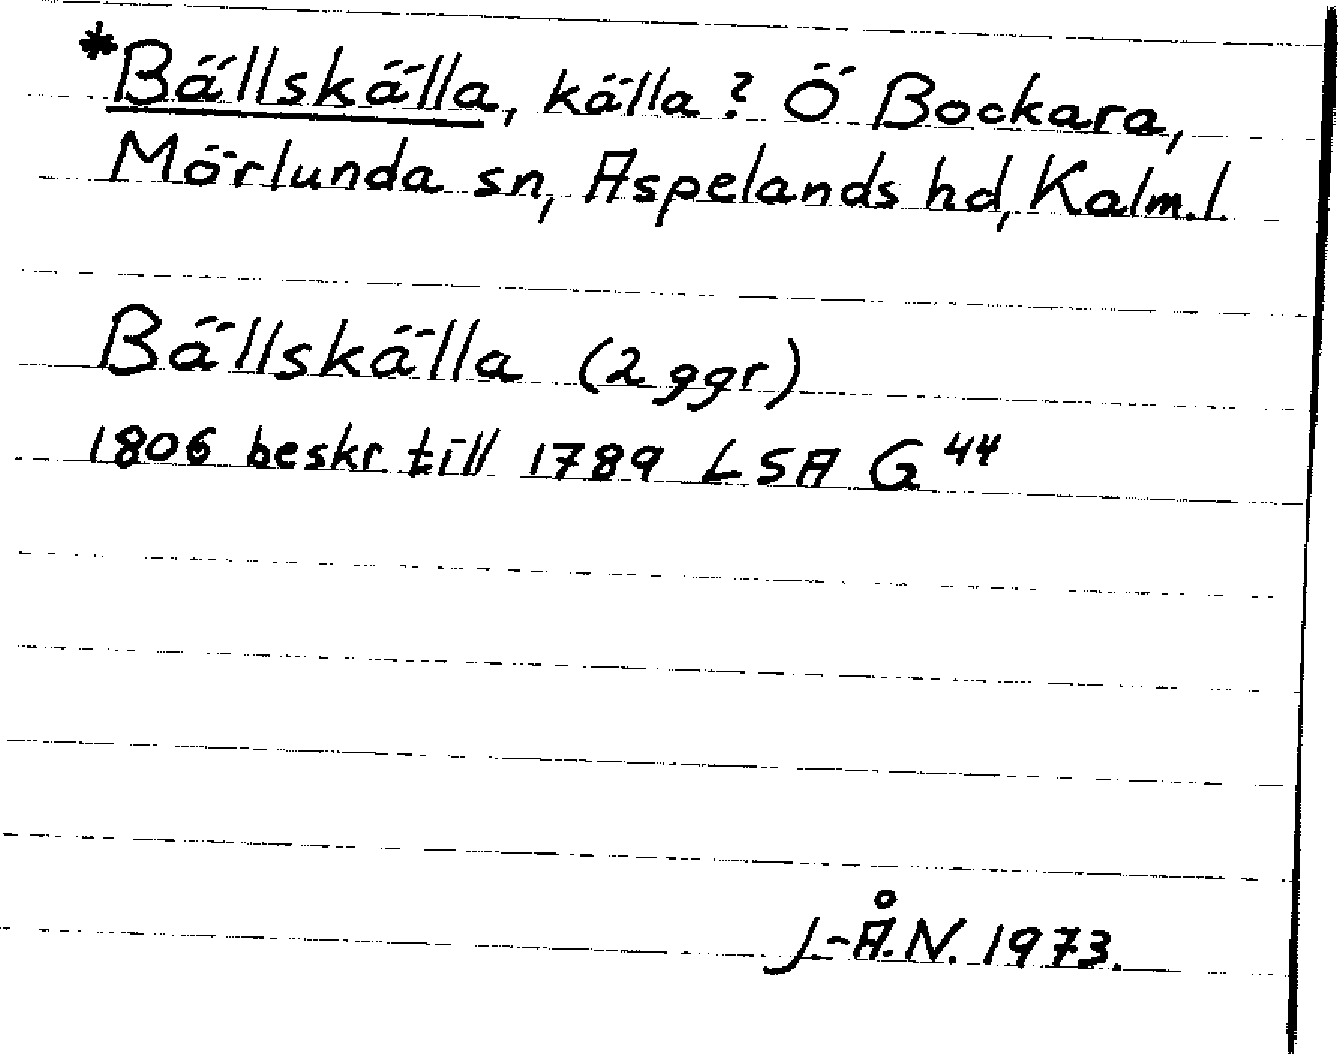 *Bällskälla, källa? Ö Bockara,
Mörlunda sn, Aspelands hd, Kalm.l.
Bällskälla (2 ggr)
1806 beskr till 1789 LSA G 44
J.-Å.N. 1973.